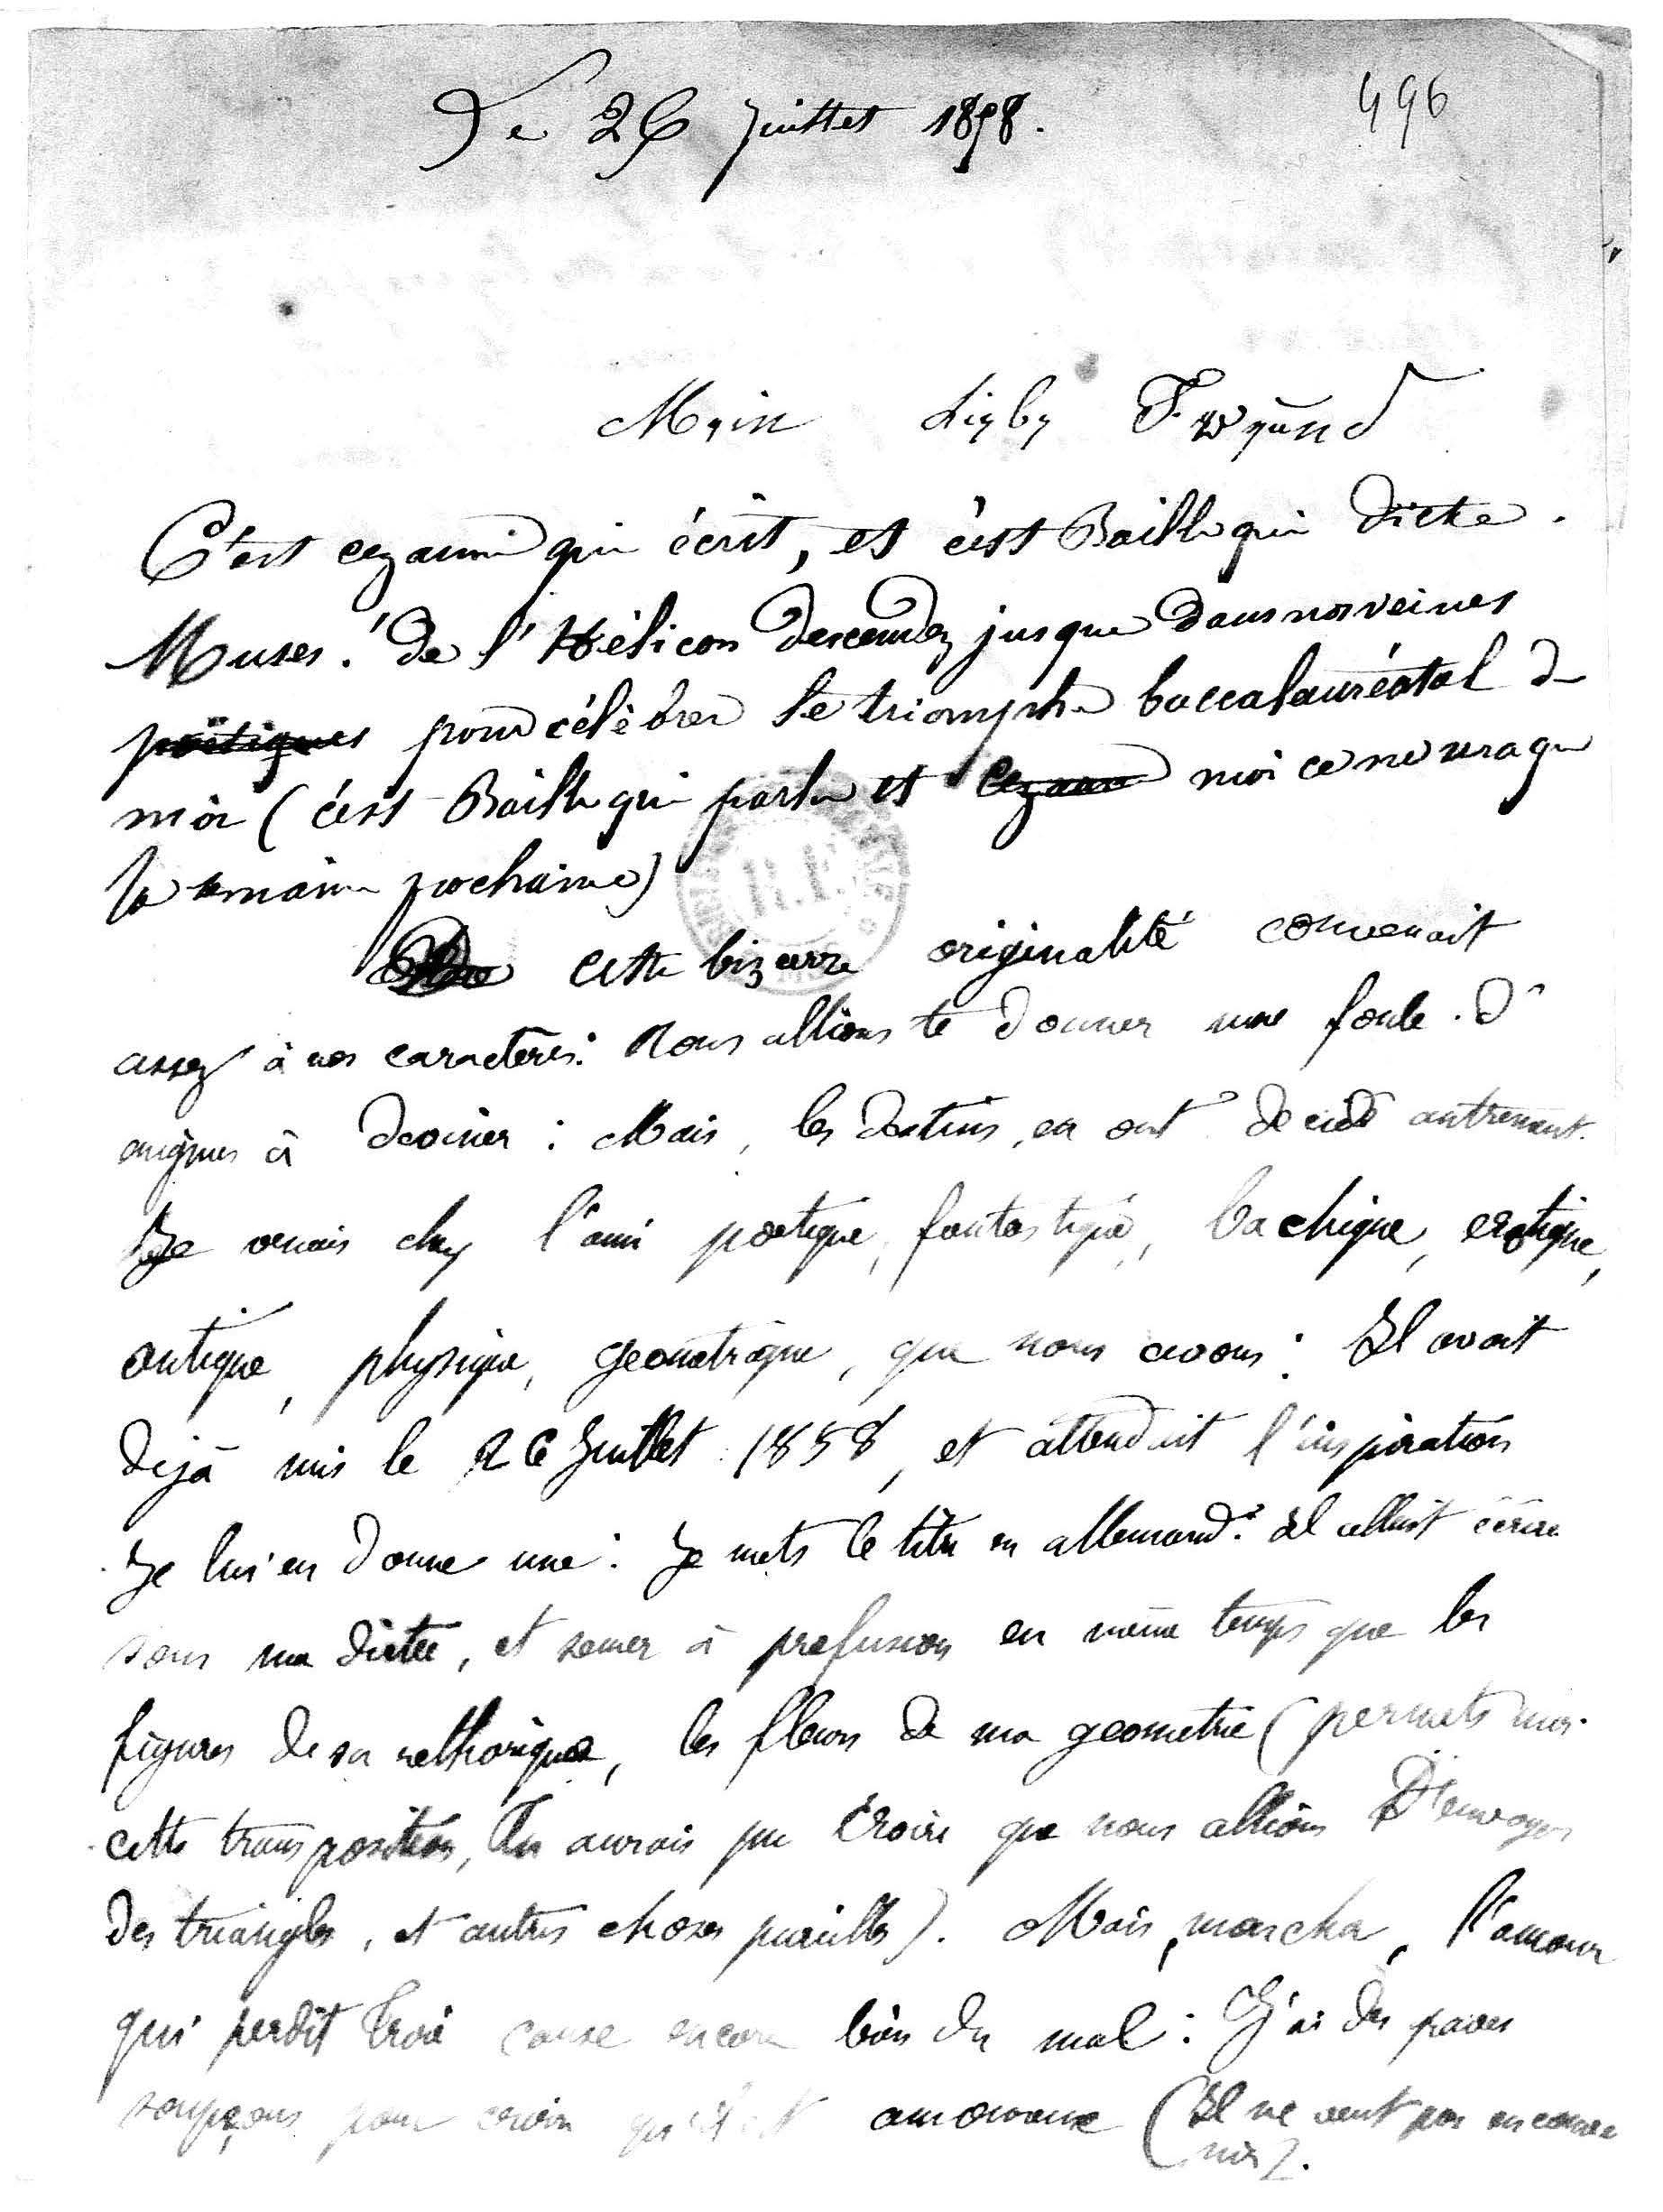 Le 26 Juillet 1858.
496
Mein Lieber Freund
C'est cezanne qui écrit, et c'est Baille qui dicte.
Muses! de l'Hélicon descendez jusque dans nos veines
poëtiques pour célèbrer le triomphe baccalauréatal de
moi (c'est Baille qui parle et cezanne moi ce ne sera que
la semaine prochaine)
cette bizarre originalité convenait
assez à nos caractères: Nous allions te donner une foule d'
enigmes à deviner: Mais, les destins en ont decidé autrement.
Je venais chez l'ami poetique, fantastique, bachique, erotique,
antique, physique, geometrique, que nous avons: Il avait
déjà mis le 26 Juillet 1858, et attendait l'inspiration
Je lui en donne une: Je mets le titre en allemand: il allait écrire
sous ma dictée, et semer à profusion en même temps que les
figures de sa rethorique, les fleurs de ma geometrie (permets moi
cette transposition, Tu aurais pu croire que nous allions t'envoyer
des triangles, et autres choses pareilles). Mais, mon cher, l'amour
qui perdit Troie cause encore bien du mal: J'ai des graves
soupçons pour croire qu'il est amoureux (Il ne veut pas en conve
nir).